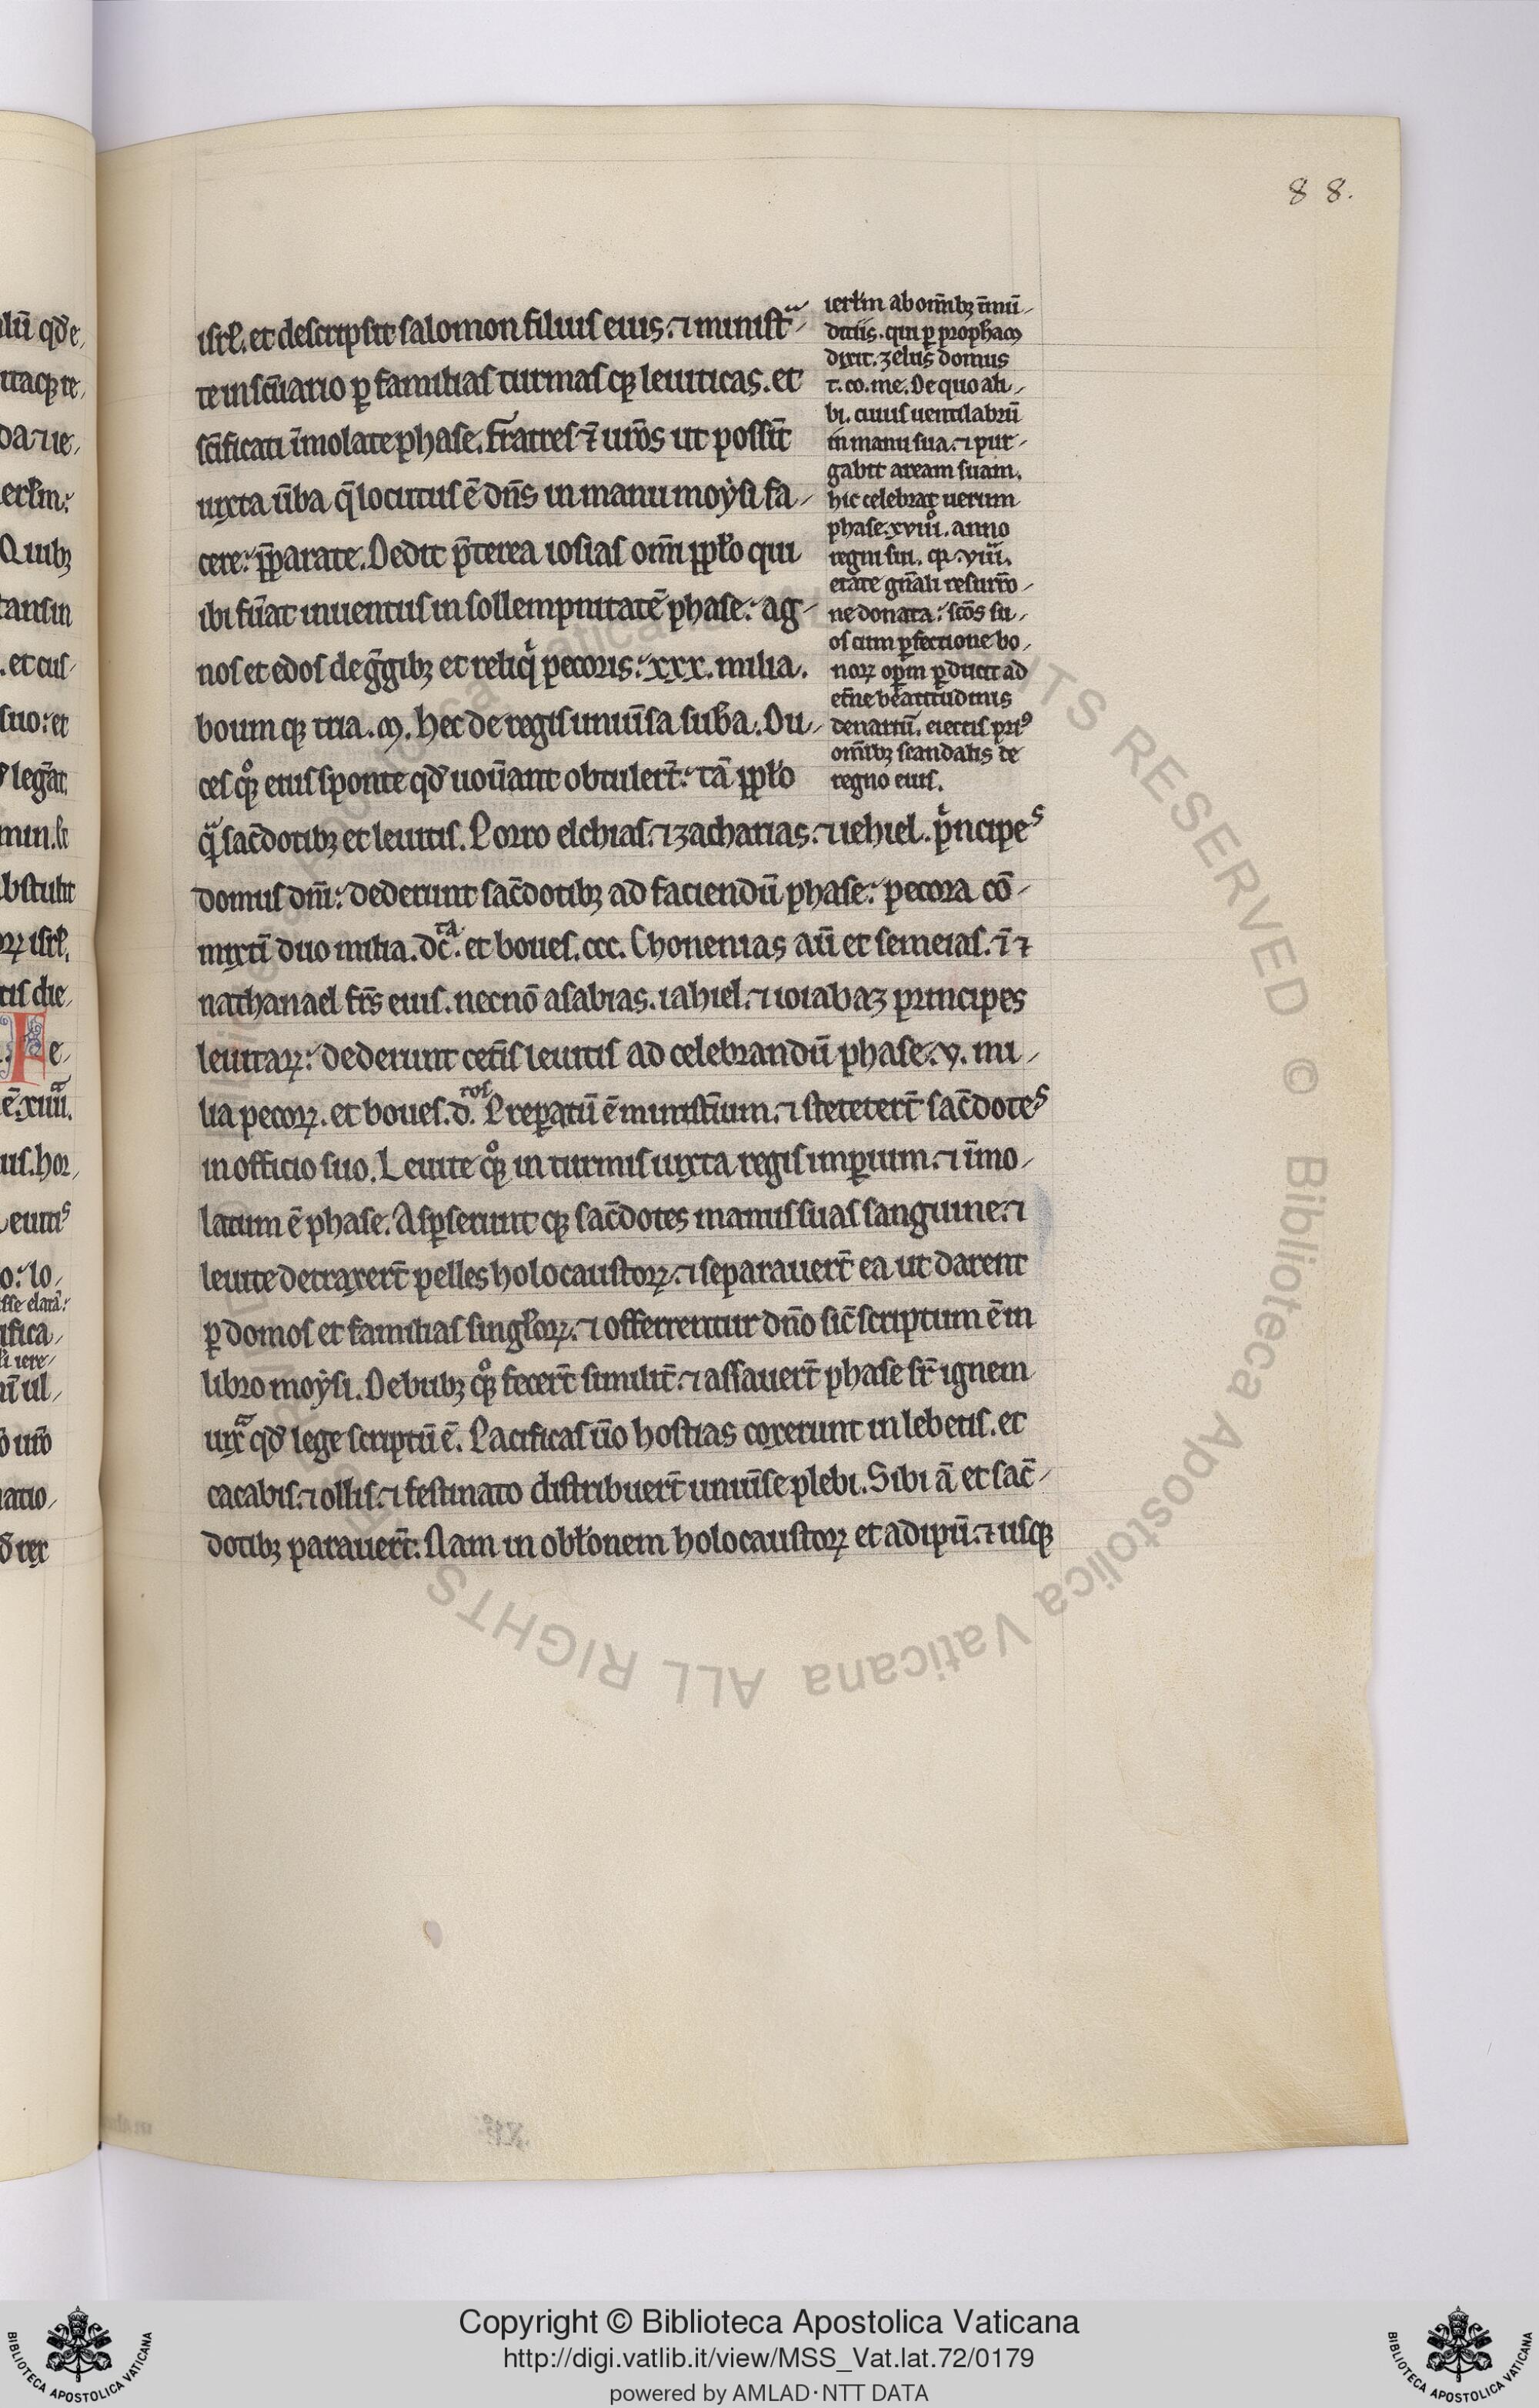 88.
isrl̄. et descripsit salomon filius eius. ⁊ minist̄ͣ-
te in sc̄uario ꝑ familias turmasqꝫ leuiticas. et
sc̄ificati īmolate phase. Fratres ⁊̄ ur̄os ut possīt
iuxta ūba q̄ locutus ē dn̄s in manu moẏsi fa-
cere: p̄parate. Dedit p̄terea iosias om̄i ppl̄o qui
ibi fūat inuentus in sollempnitate phase: ag-
nos et edos de ḡgibꝫ et reliqͥ pecoris: xxx. milia.
boumqꝫ tria. m. hec de regis uniūsa suba. Du-
ces qͦꝫ eius sponte qd̄ uoūant obtulert̄: tā ppl̄o
qͣ sac̄dotibꝫ et leuitis. Porro elchias. ⁊ zacharias. ⁊ iehiel. pͥncipes
domus dn̄i: dederunt sac̄dotibꝫ ad faciendū phase: pecora cō-
mixtī duo milia. dc̄. ta et boues. ccc. Chonenias aū et semeias. ī ⁊
nathanael fr̄s eius. necnō asabias. iahiel. ⁊ ioiabaz principes
leuitaꝝ: dederunt cet̄is leuitis ad celebrandū phase. v. mi-
lia pecoꝝ. et boues. d. tos Preꝑatū ē minist̄ium. ⁊ stetetert̄ sac̄dotes
in officio suo. Leuite qͦꝫ in turmis iuxta regis imꝑium. ⁊ īmo-
latum ē phase. Asꝑseruntqꝫ sac̄dotes manus suas sanguine. ⁊
leuite detraxert̄ pelles holocaustoꝝ. ⁊ separauert̄ ea ut darent
ꝑ domos et familias singl̄oꝝ. ⁊ offerrentur dn̄o sic̄ scriptum ē in
libro moẏsi. De bubꝫ qͦꝫ fecert̄ similit̄. ⁊ assauert̄ phase sr̄ ignem
iuxͣ qd̄ lege scriptū ē. Pacificas ūo hostias coxerunt in lebetis. et
cacabis. ⁊ ollis. ⁊ festinato distribuert̄ uniūse plebi. Sibi ā et sac̄-
dotibꝫ parauert̄. Nam in obl̄onem holocaustoꝝ et adipū. ⁊ usqꝫ
ierl̄m ab om̄ibꝫ īmū-
diciis. qui ꝑ propham
dixit. zelus domus
t. co. me. De quo ali-
bi. cuius uentilabrū
in manu sua. ⁊ pur-
gabit aream suam.
hic celebrat uerum
phase xviiiͦ. anno
regni sui. qr. viiiͣ.
etate gn̄ali resurr̄o-
ne donata: sc̄os su-
os cum ꝑfectione bo-
noꝝ oꝑm ꝑducit ad
et̄ne beatitudinis
denariū. eiectis pri⁹
om̄ibꝫ scandalis de
regno eius.
Copyright © Biblioteca Apostolica Vaticana
http://digi.vatlib.it/view/MSS_Vat.lat.72/0179
powered by AMLAD·NTT DATA